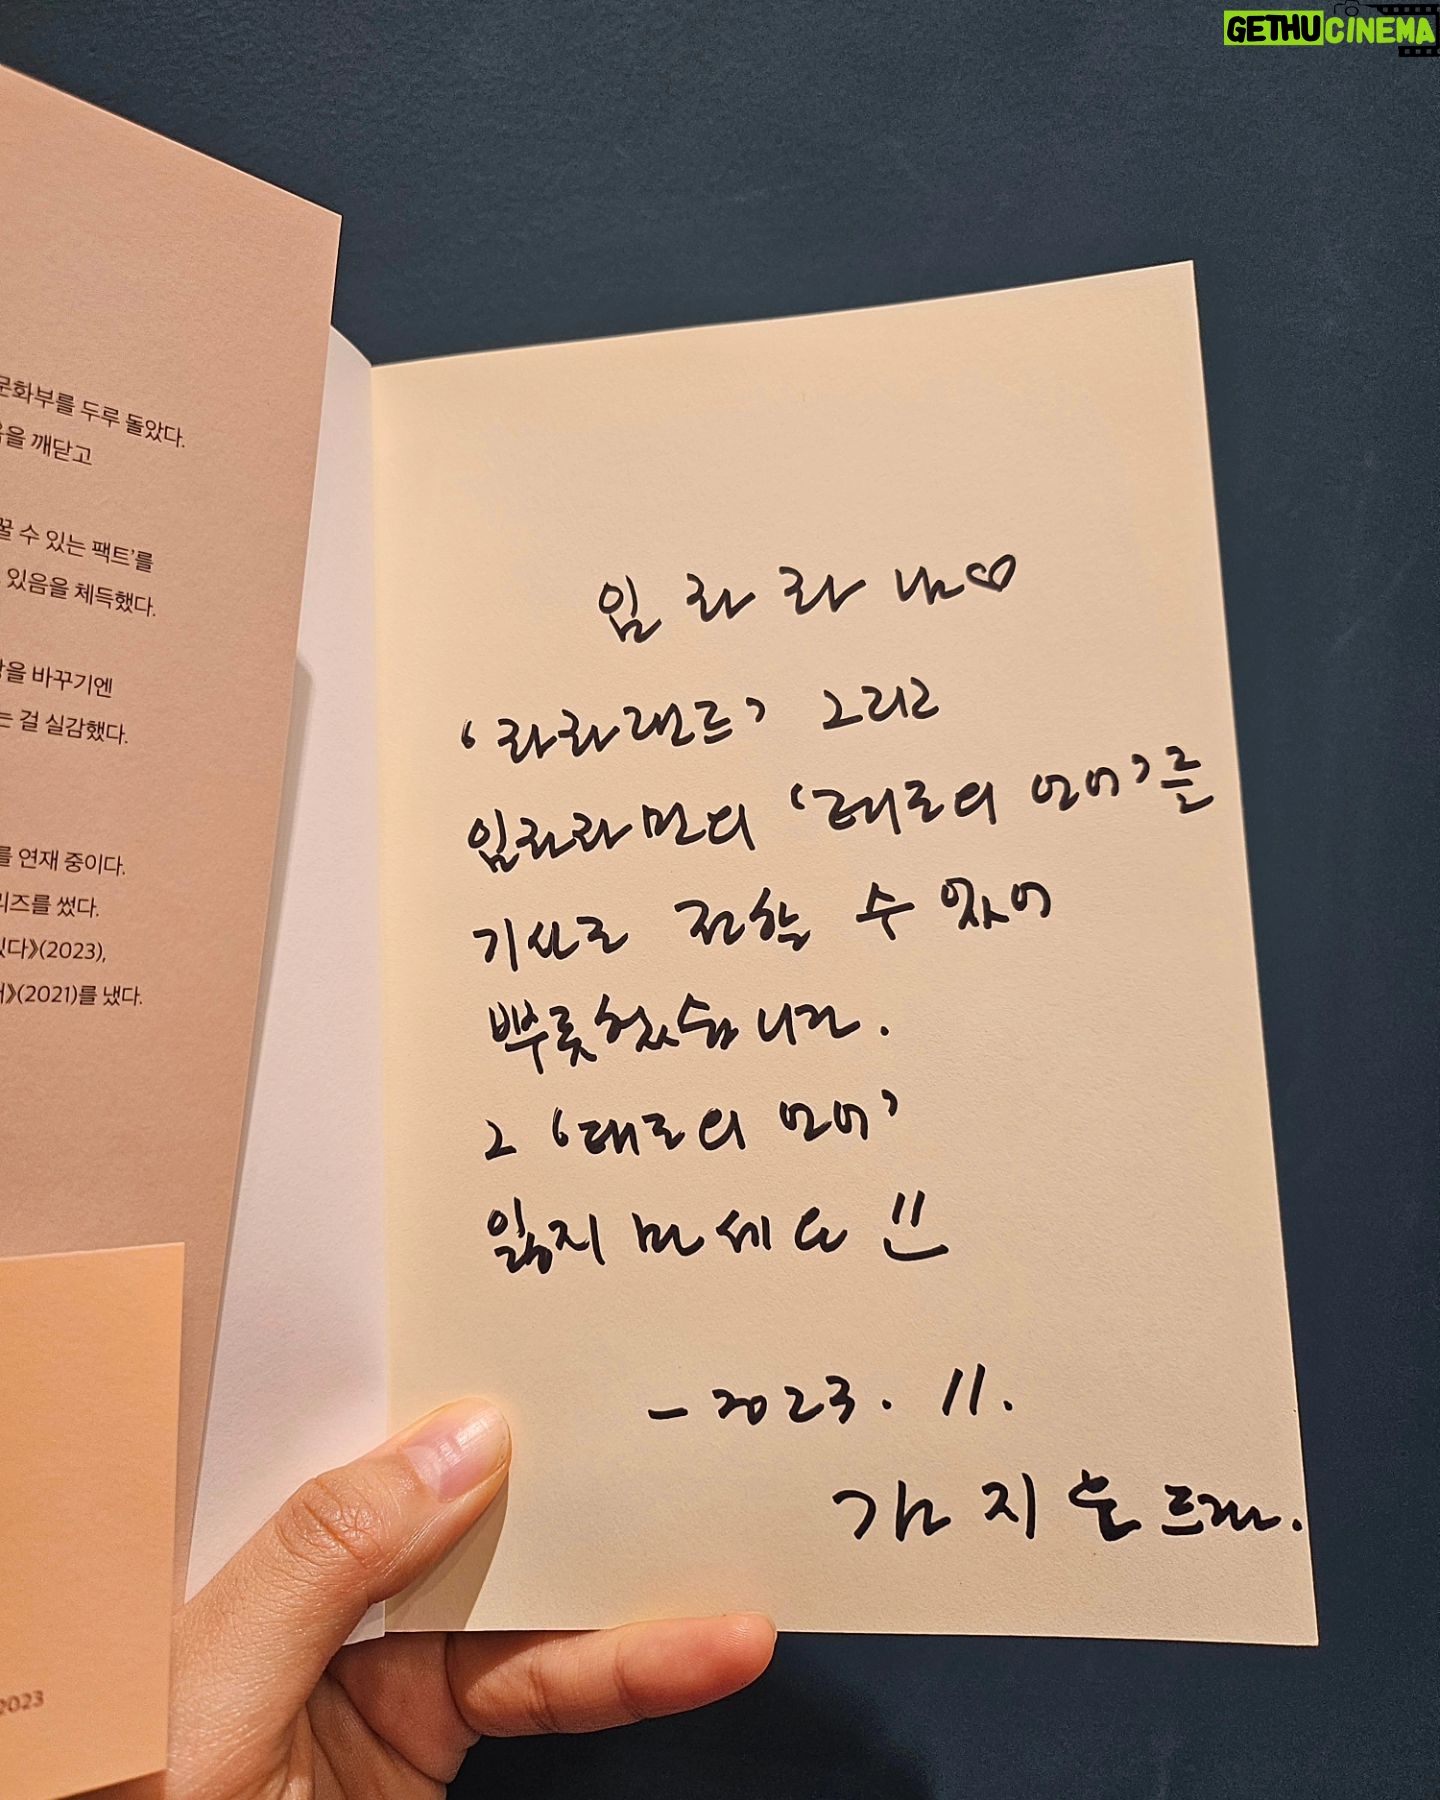 GETHUCINEMA
문화부를 두루 돌았다.
음을 깨닫고
꿀 수 있는 팩트'를
있음을 체득했다.
상을 바꾸기엔
는 걸 실감했다.
를 연재 중이다.
리즈를 썼다.
있다》(2023),
》(2021)를 냈다.
2023
임 라 라 님♡
'라라랜드' 그리고
임라라만의 '태로의 언어'를
기사로 전할 수 있어
뿌듯했습니다.
그 '태로의 언어'
잃지 마세요!!
-2023. 11.
김 지 드림.